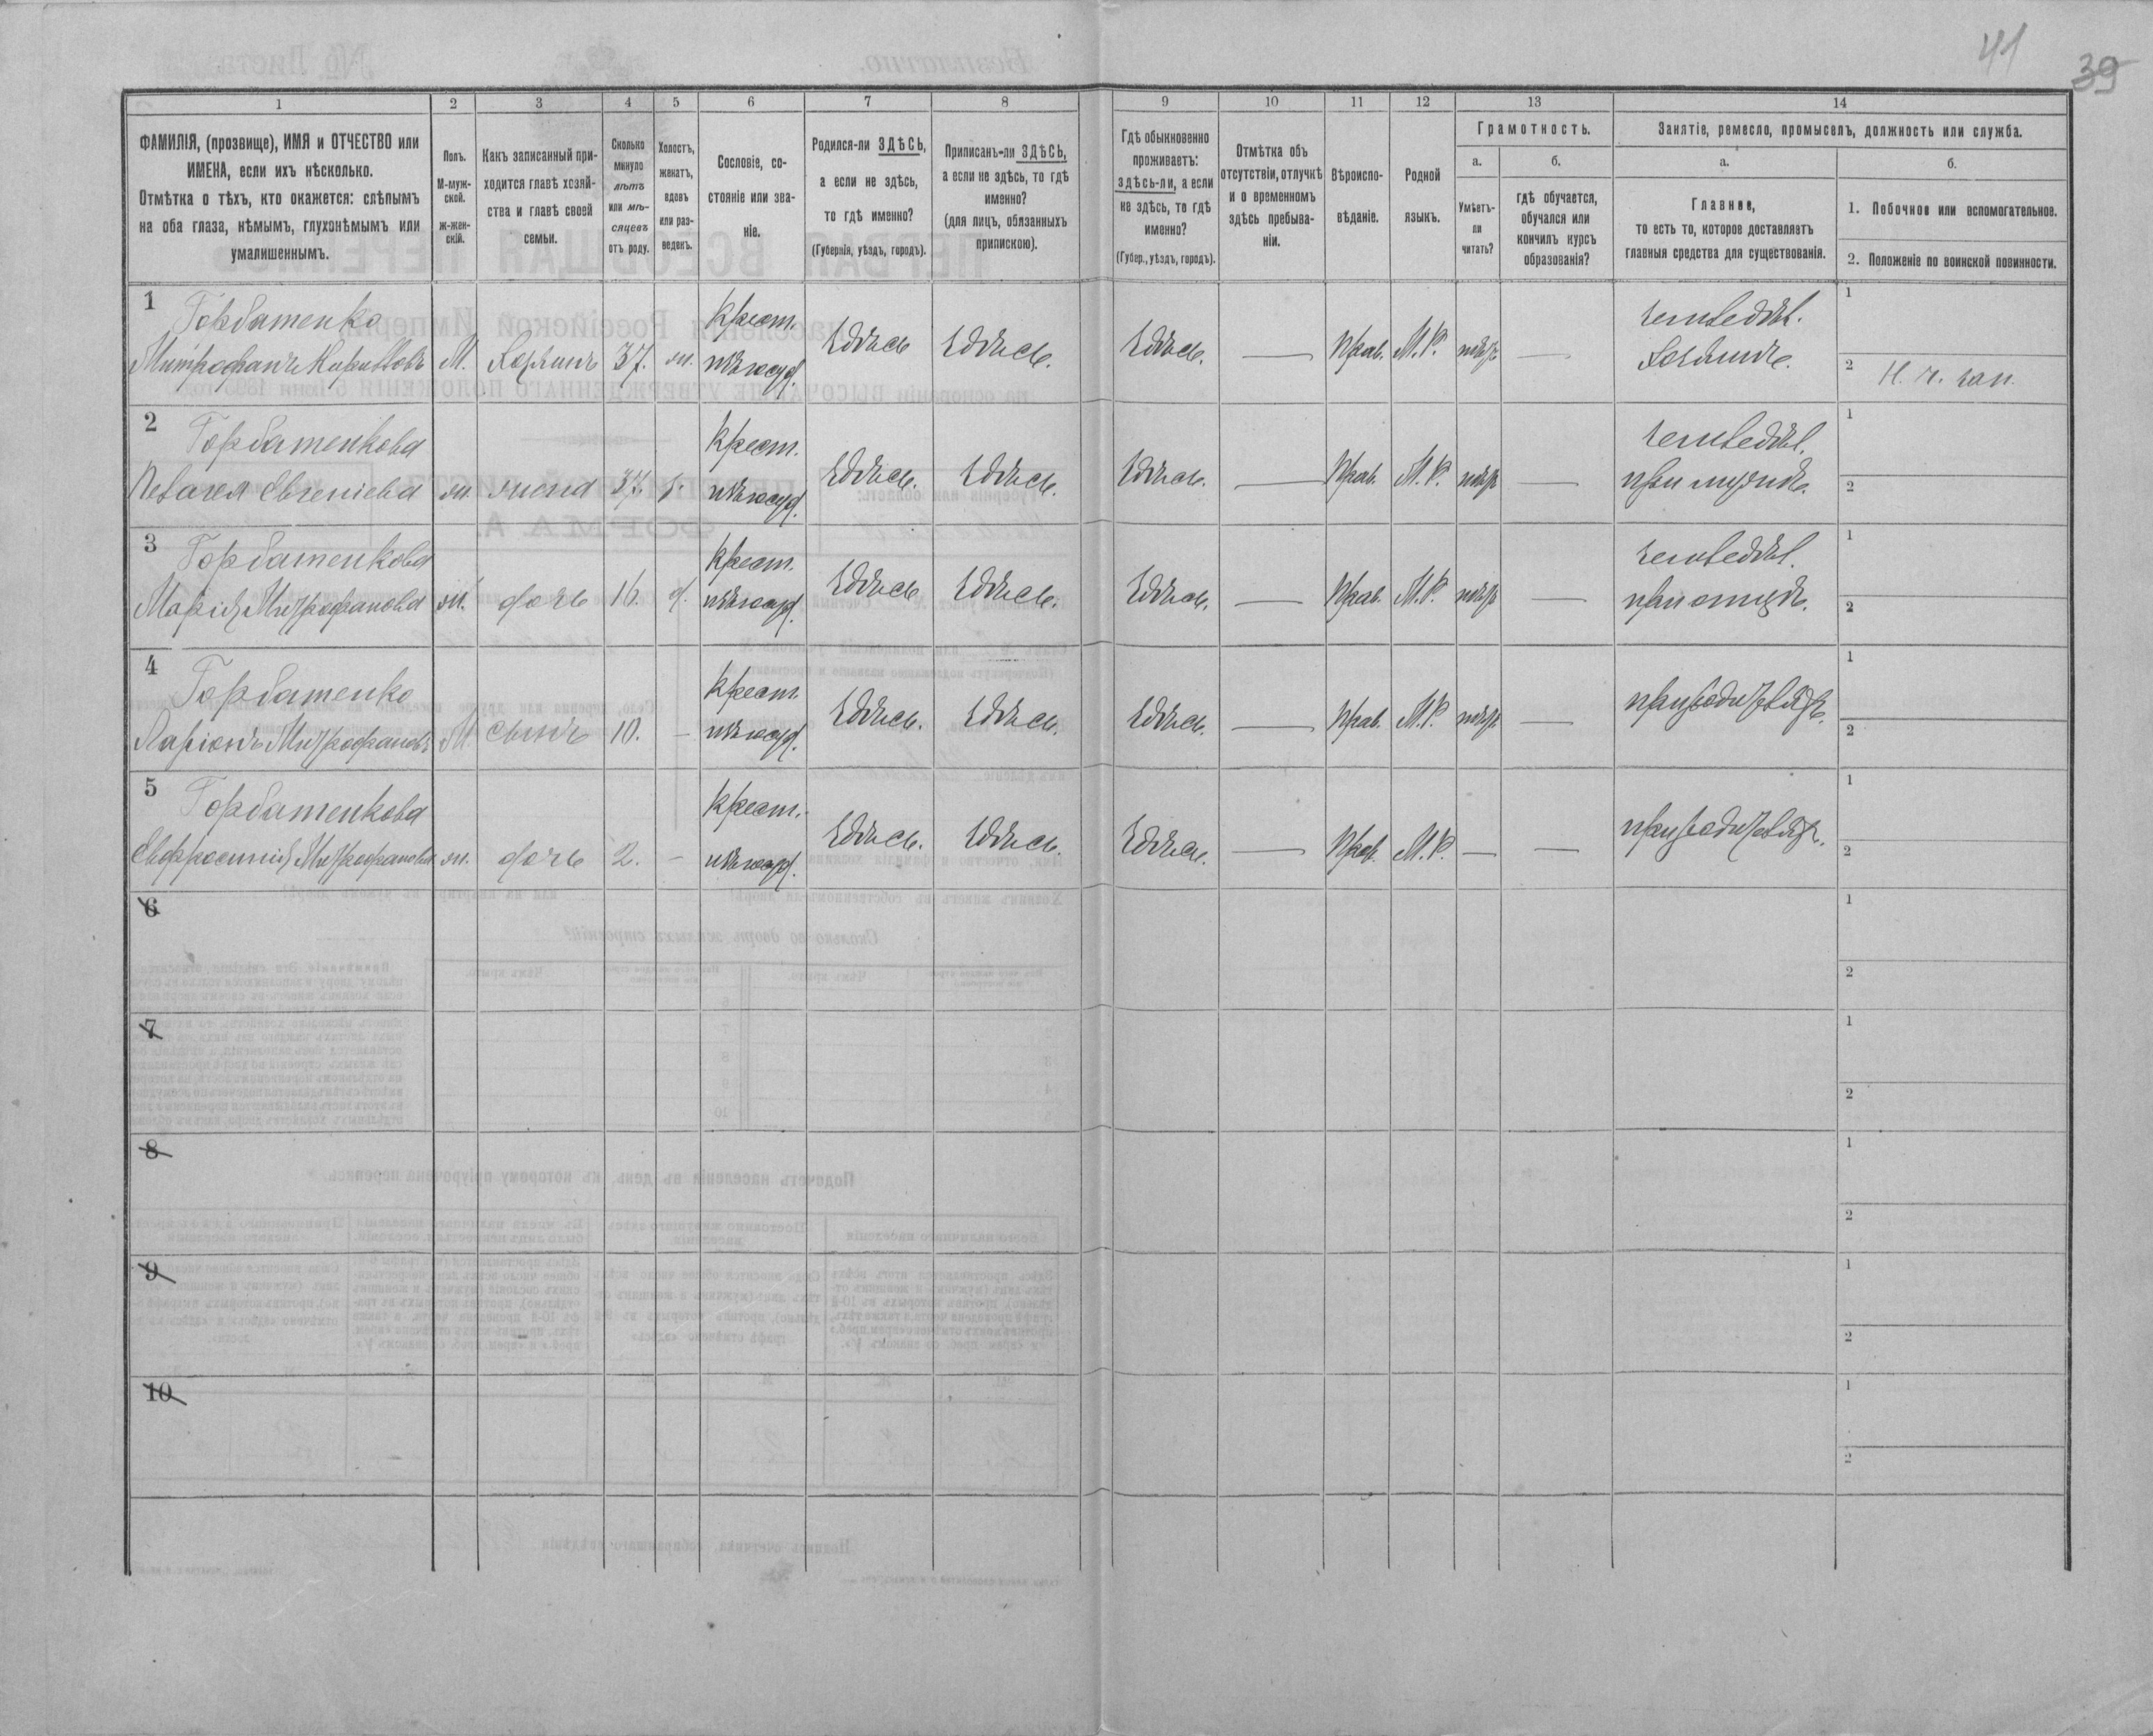 41
39
1 2 3 4 5 6 7 8 9 10 11 12 13 14
ФАМИЛІЯ, (прозвище), ИМЯ и ОТЧЕСТВО или
ИМЕНА, если ихъ нѣсколько.
Отмѣтка о тѣхъ, кто окажется: слѣпымъ
на оба глаза, нѣмымъ, глухонѣмымъ или
умалишеннымъ.
Полъ.
М-муж-
ской.
ж-жен-
скій.
Какъ записанный при-
ходится главѣ хозяй-
ства и главѣ своей
семьи.
Сколько
минуло
лѣтъ
или мѣ-
сяцевъ
отъ роду.
Холостъ,
женатъ,
вдовъ
или раз-
веденъ.
Сословіе, со-
стояніе или зва-
ніе.
Родился-ли ЗДѢСЬ,
а если не здѣсь,
то гдѣ именно?
(Губернія, уѣздъ, городъ).
Приписанъ-ли ЗДѢСЬ,
а если не здѣсь, то гдѣ
именно?
(для лицъ, обязанныхъ
припискою).
Гдѣ обыкновенно
проживаетъ:
здѣсь-ли, а если
не здѣсь, то гдѣ
именно?
(Губер., уѣздъ, городъ).
Отмѣтка объ
отсутствіи, отлучкѣ
и о временномъ
здѣсь пребыва-
ніи.
Вѣроиспо-
вѣданіе.
Родной
языкъ.
Грамотность.
а.
Умѣетъ-
ли
читать?
б.
гдѣ обучается,
обучался или
кончилъ курсъ
образованія?
Занятіе, ремесло, промыселъ, должность или служба.
а.
Главное,
то есть то, которое доставляетъ
главныя средства для существованія.
б.
1. Побочное или вспомогательное.
2. Положеніе по воинской повинности.
1
Горбатенко
Митрофанъ Кирилловъ М. Хозяинъ 37. ж.
Крест.
Здѣсь Здѣсь. Здѣсь. — Прав. М. Р. —
земледѣл.
Хозяинъ.
1
2
2
Горбатенкова
Евгеніева ж. жена 37.
Крест.
Здѣсь. Здѣсь. Здѣсь. — Прав. М. Р. —
земледѣл.
при мужѣ.
1
2
3
Горбатенкова
Марія Митрофанова ж. дочь 16. д.
Крест.
Здѣсь Здѣсь. Здѣсь. — Прав. М. Р. —
земледѣл.
при отцѣ.
1
2
4
Горбатенко
Ларіонъ Митрофановъ М сынъ 10. —
Крест.
Здѣсь. Здѣсь. Здѣсь. — Прав. М. Р. —
при родителяхъ.
1
2
5
Горбатенкова
Евфросинія Митрофанова ж. дочь 2. —
Крест.
Здѣсь. Здѣсь. Здѣсь. — Прав. М. Р. — —
при родителяхъ.
1
2
6
1
2
7
1
2
8
1
2
9
1
2
10
1
2